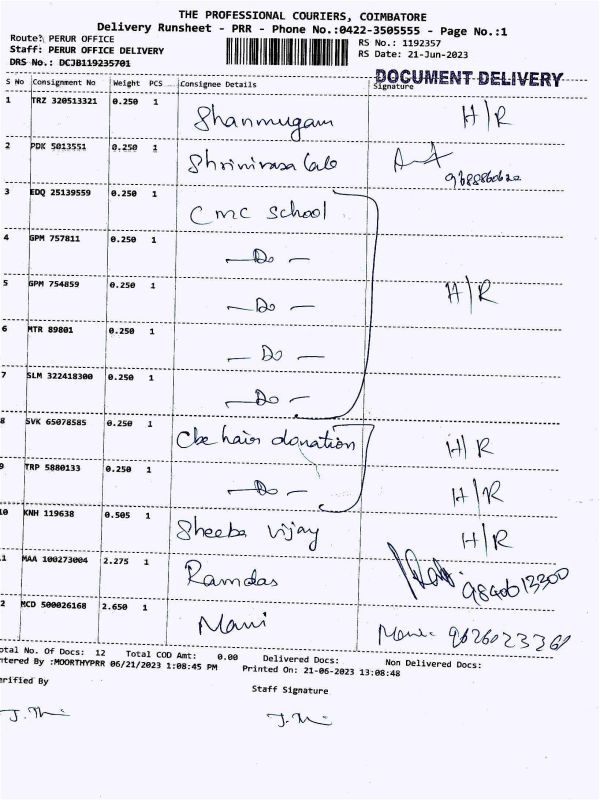 THE PROFESSIONAL COURIERS, COIMBATORE
Delivery Runsheet - PRR - Phone No.:0422-3505555 - Page No.:1
Route: PERUR OFFICE
RS No.: 1192357
Staff: PERUR OFFICE DELIVERY
RS Date: 21-Jun-2023
DRS No.: DCJB119235701
DOCUMENT DELIVERY
S No Consignment No Weight PCS Consignee Details Signature
1 TRZ 320513321 0.250 1 Shanmugam H/R
2 PDK 5013551 0.250 1 Shrinivasa
3 EDQ 25139559 0.250 1 CMC School
4 GPM 757811 0.250 1 — Do —
5 GPM 754859 0.250 1 — Do — H/R
6 MTR 89801 0.250 1 — Do —
7 SLM 322418300 0.250 1 — Do —
8 SVK 65078585 0.250 1 Cbe hair donation H/R
9 TRP 5880133 0.250 1 — Do — H/R
10 KNH 119638 0.505 1 Sheeba Vijay H/R
11 MAA 100273004 2.275 1 Ramdas 9840613300
2 MCD 500026168 2.650 1 Mani Mani
otal No. Of Docs: 12 Total COD Amt: 0.00 Delivered Docs: Non Delivered Docs:
ntered By :MOORTHYPRR 06/21/2023 1:08:45 PM Printed On: 21-06-2023 13:08:48
erified By
Staff Signature